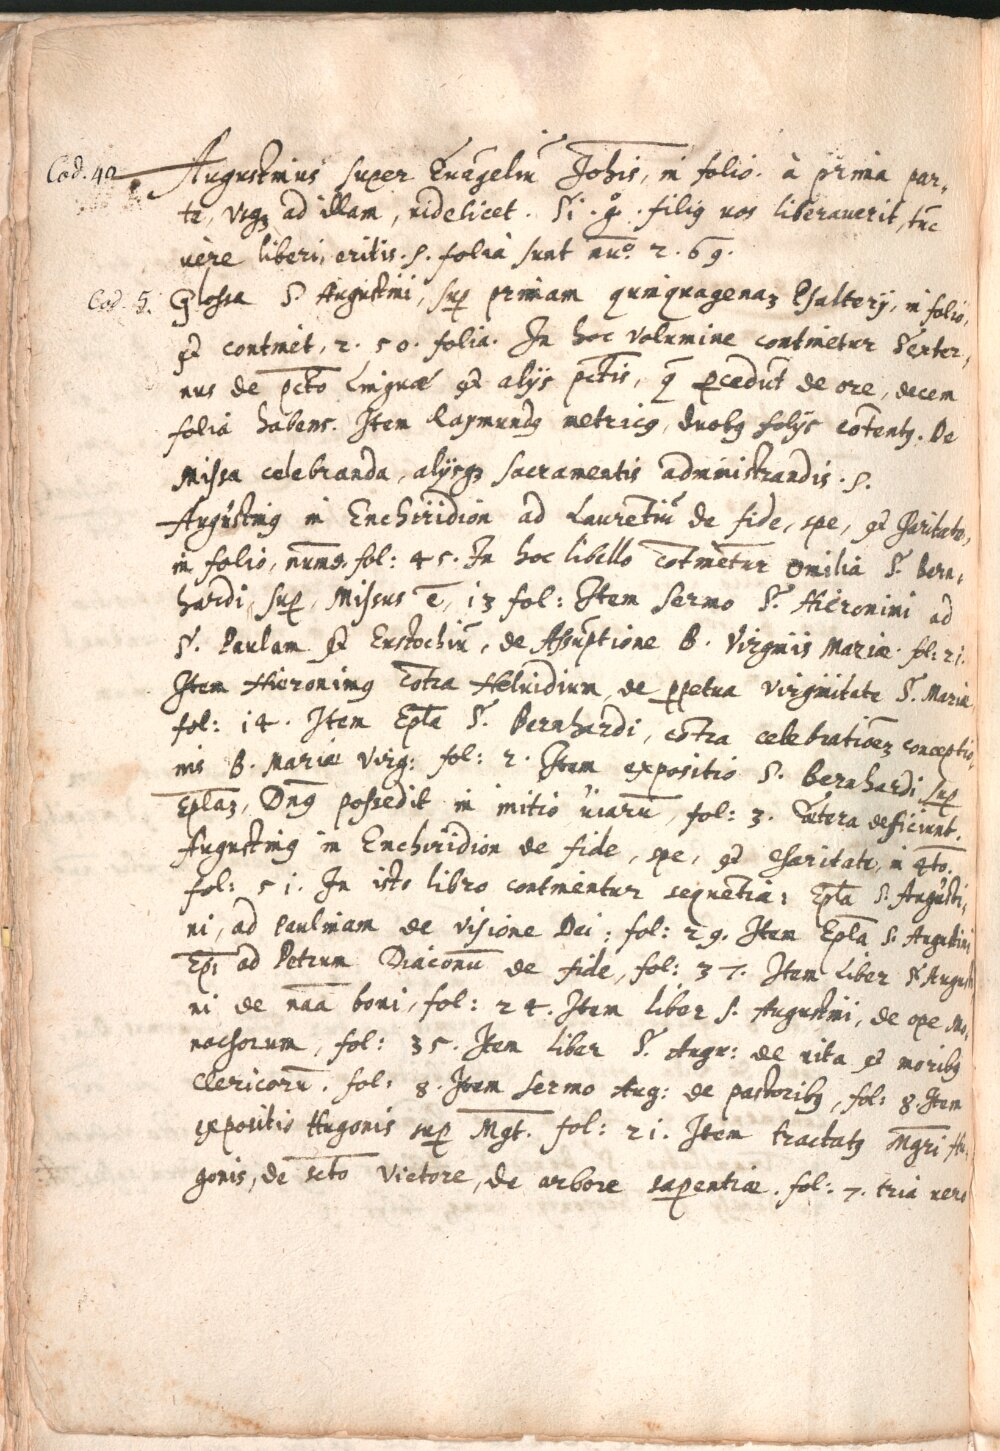 Cod. 40 Augustinus super Euāgeliū Joh̅is, in folio. à prima par-
te, usq; ad illam, videlicet. Si. g̊. filiꝰ vos liberauerit, tūc
uere liberi eritis. S. folia sunt nu̅o 2. 69.
Cod. 5. Glossa S. Augustini, sup̱ primam quinquagenaʒ Psalterij, in folio,
et continēt, 2. 50. folia. In hoc volumine continetur Sexter,
nus de pc̅to Linguæ et alijs pc̅tis, q̄ p̱cedūt de ore, decem
folia habens. Item Raymundꝰ metricꝰ, duobꝰ folijs cōtentꝰ. De
Missa celebranda, alijsqʒ sacramentis administrandis. S.
Augustinꝰ in Enchiridion ad Laurētiū de fide, spe, et charitate,
in folio, nume. fol: 45. In hoc libello cōtinētur Omilia S. Bern,
hardi, sup̱, Missus ē, 13 fol: Item Sermo S. Hieronimi ad
S. Paulam et Eustochiū, de Assūptione B. Virginis Mariæ. fol: 21.
Item Hieronimꝰ cōtra Heluidium, de p̱petua virginitate S. Mariæ
fol: 14. Item Ep̅la S. Bernhardi, cōtra celebratioēʒ conceptio,
nis B. Mariæ Virg: fol: 2. Item expositio S. Bernhardi sup̱
Ep̅laʒ, Dn̅ꝰ possedit in initio uiarū, fol: 3. Cætera deficiunt.
Augustinꝰ in Enchiridion de fide, spe, et charitate, in 4to.
fol: 51. In isto libro continentur sequētia: Ep̅la S. Augusti,
ni, ad Paulinam de visione Dei: fol: 29. Item Ep̅la S. Augustini
Ep̅i ad Petrum Diaconū de fide, fol: 37. Item Liber S. Augusti
ni de na̅a boni, fol: 24. Item liber S. Augustini, de ope Mo,
nachorum, fol: 35. Item liber S. Augu: de uita et moribꝰ
Clericorū. fol: 8. Item sermo Aug: de pastoribꝰ, fol: 8. Item
expositio Hugonis sup̱ Mgt. fol: 21. Item tractatꝰ Mgri Hu,
gonis, de sc̅to Victore, de arbore sap̱entiæ. fol: 7. tria uero